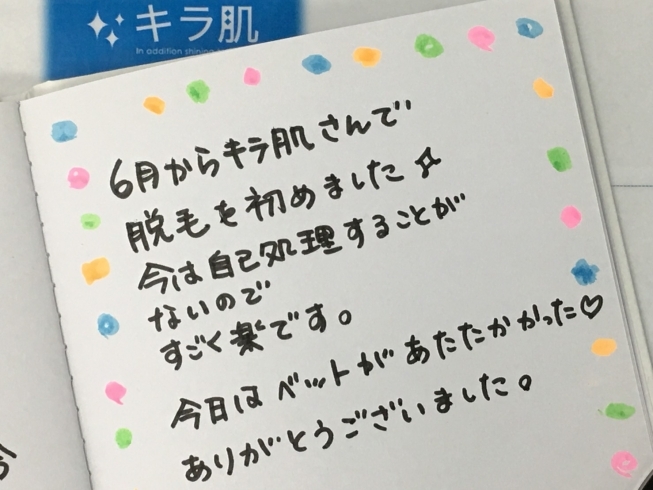 キラ肌
In addition shining
6月からキラ肌さんで
脱毛を初めました
今は自己処理することが
ないので
すごく楽です。
今日はベットがあたたかかった♡
ありがとうございました。
今